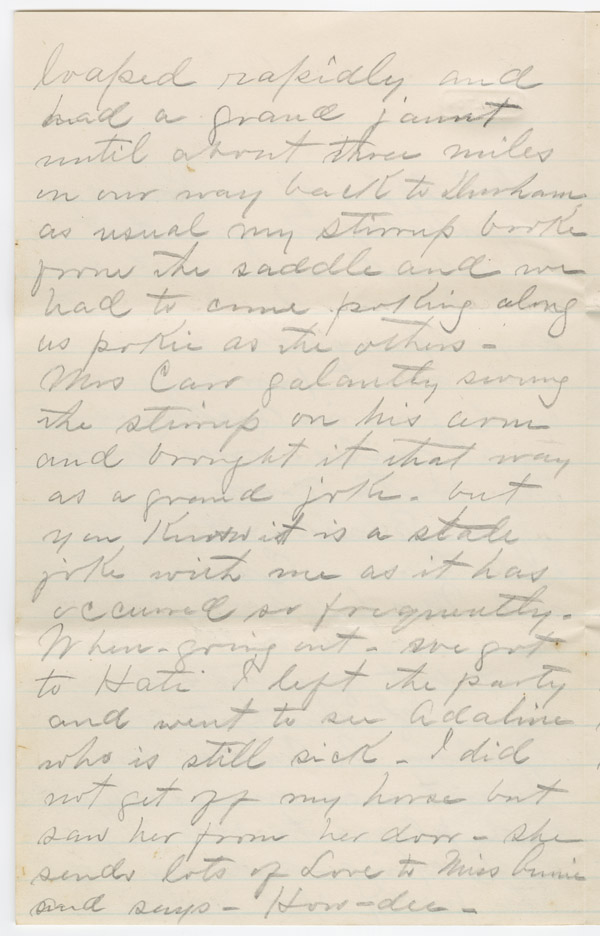 loaped rapidly and
had a grand jaunt
until about three miles
on our way back to Durham,
as usual my stirrup broke
from the saddle and we
had to come poking along
as pokie as the others -
Mrs Carr galantly swung
the stirrup on his arm
and brought it that way
as a grand joke. but
you Know it is a stale
joke with me as it has
occurred so frequently.
When - going out - we got
to Hati I left the party
and went to see Adaline
who is still sick - I did
not get off my horse but
saw her from her door - she
sends lots of Love to Miss Annie
and says - How-dee -